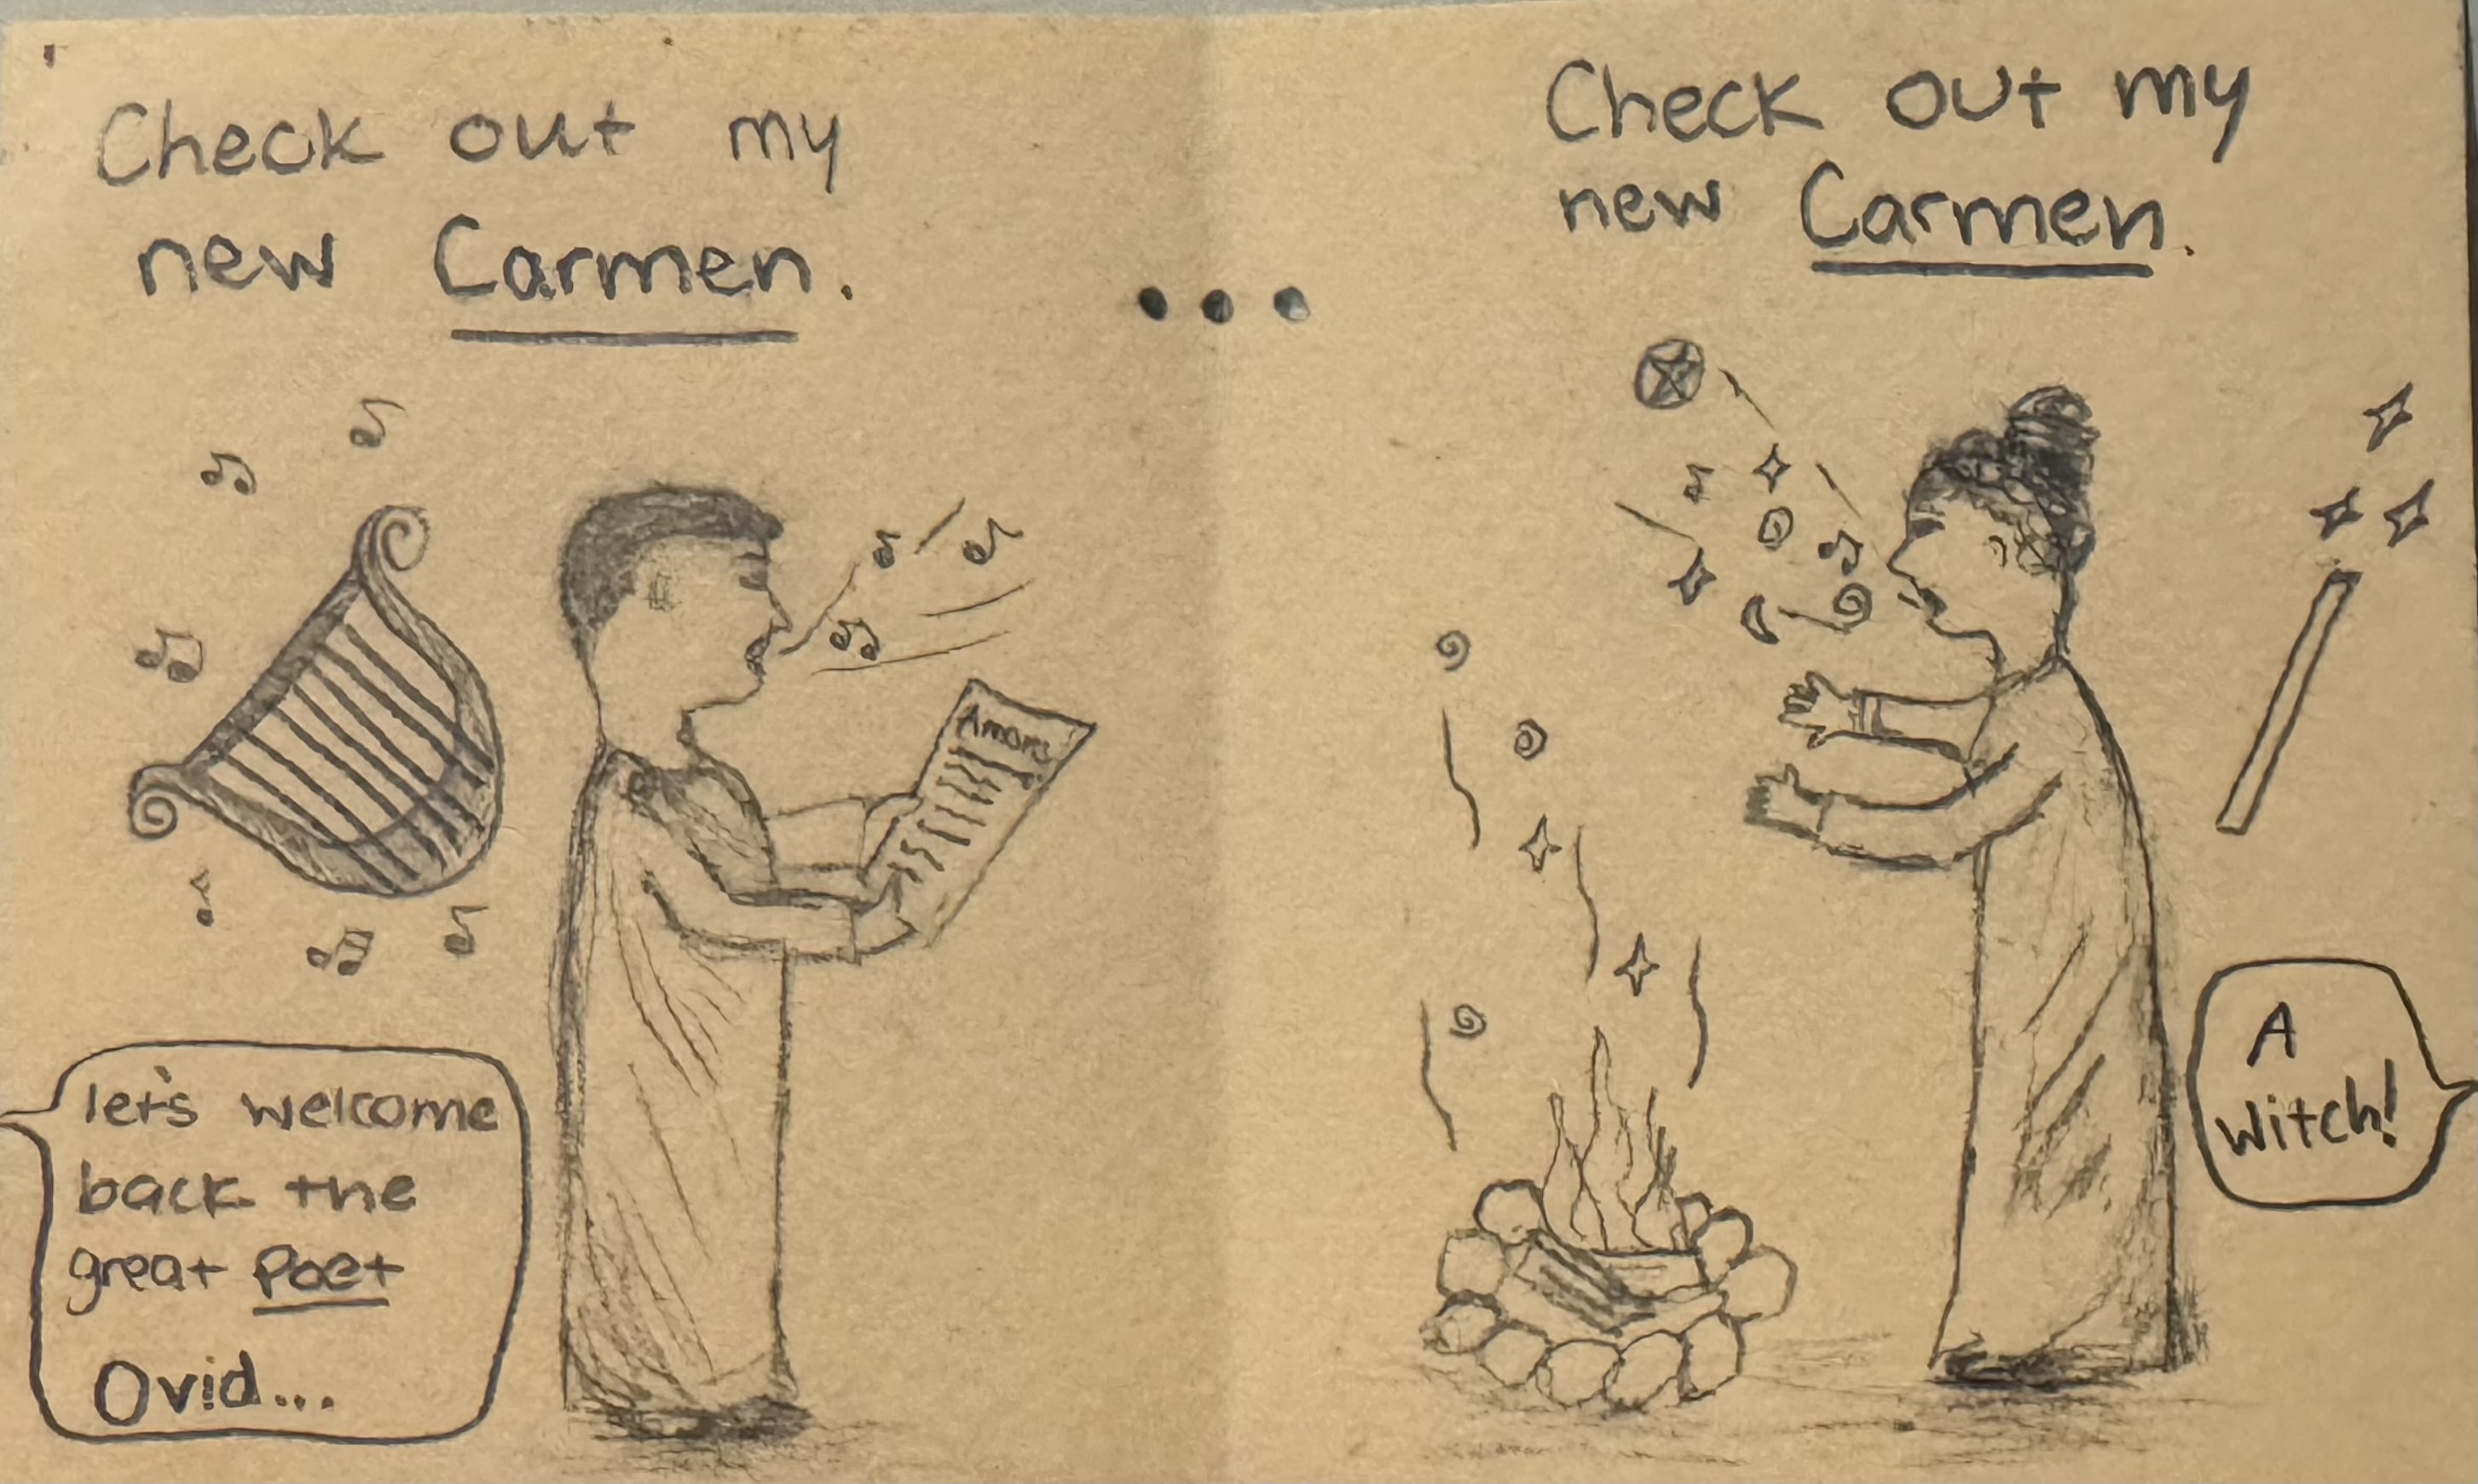 Check out my
new Carmen.
Amores
let's welcome
back the
great Poet
Ovid...
...
Check out my
new Carmen.
A
Witch!